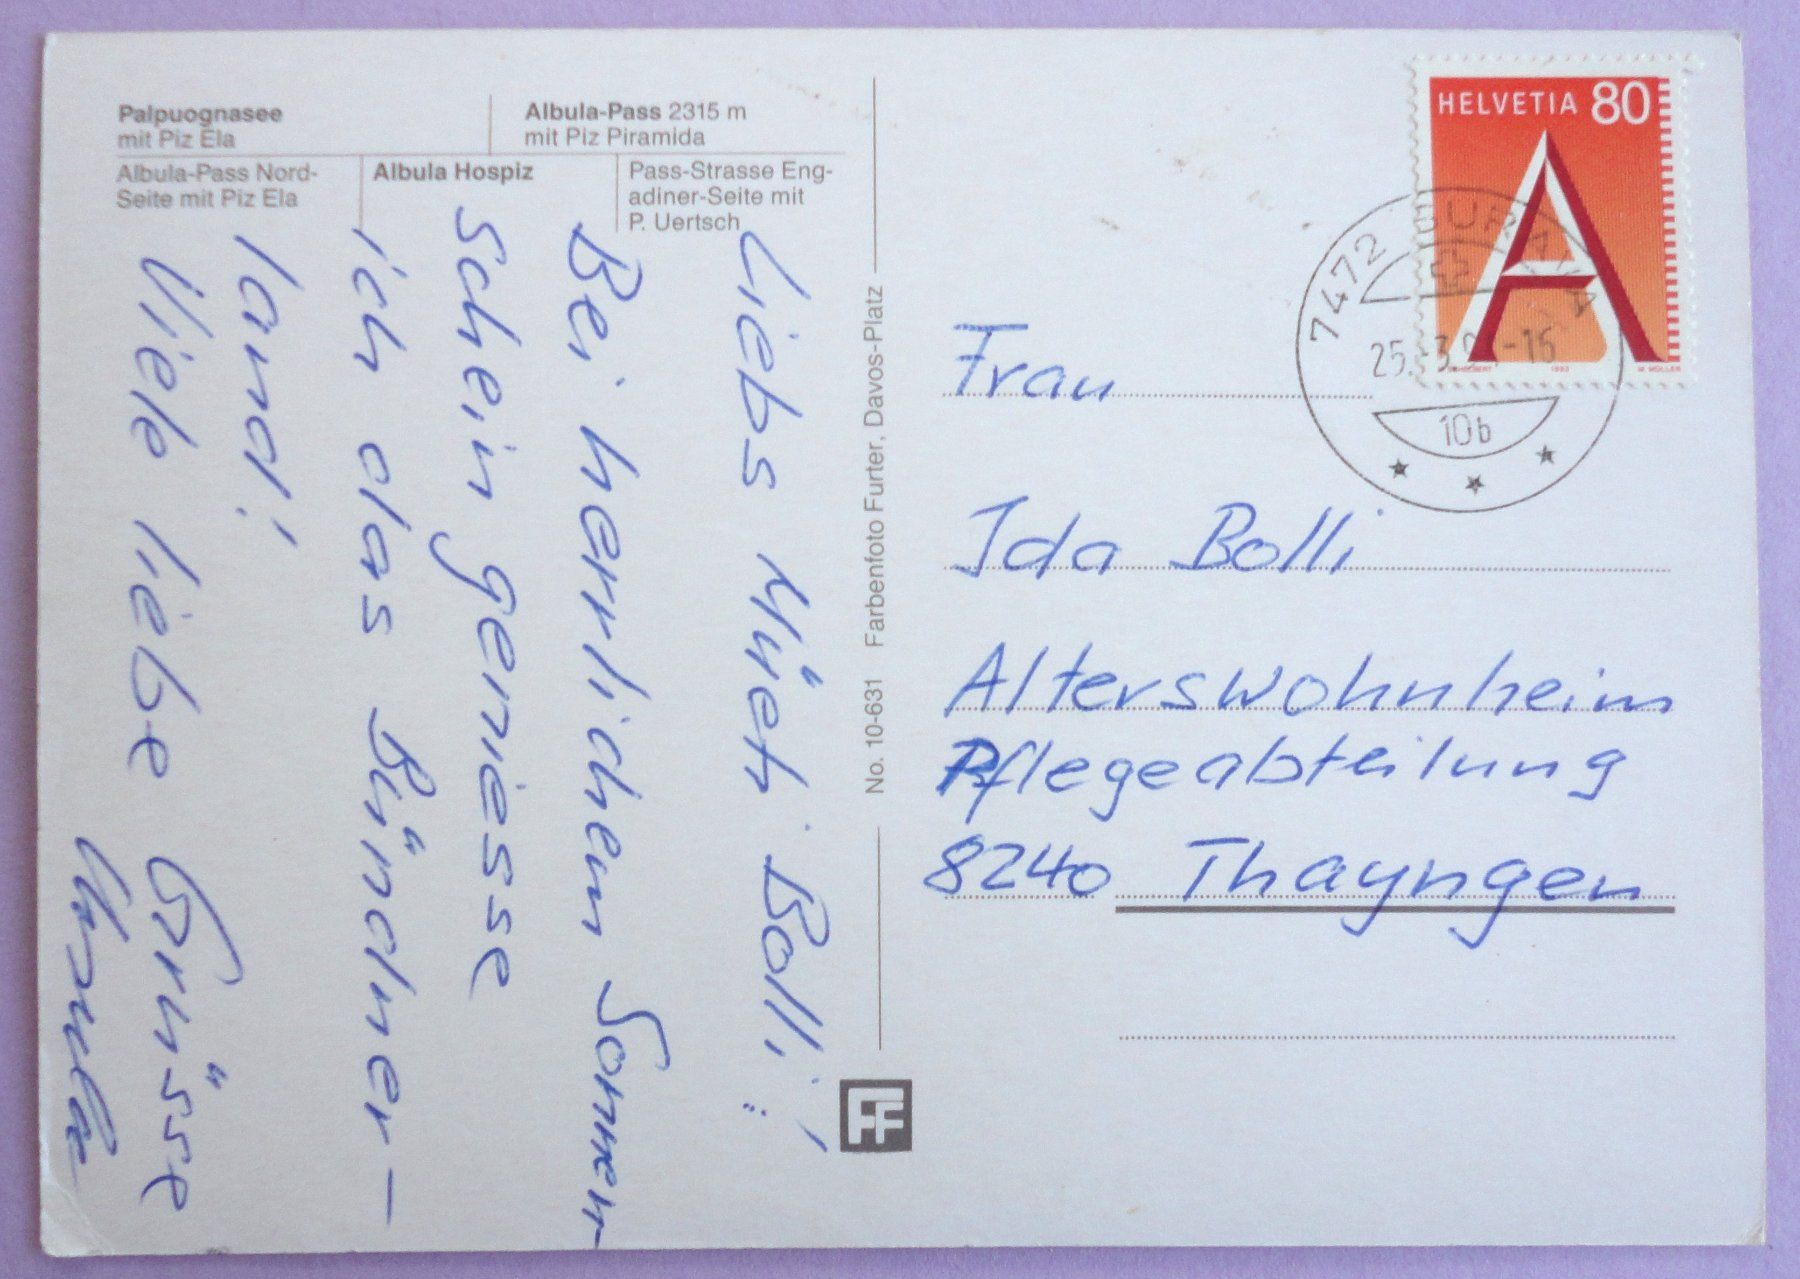 Palpuognasee
mit Piz Ela
Albula-Pass 2315 m
mit Piz Piramida
Albula-Pass Nord-
Seite mit Piz Ela
Albula Hospiz
Pass-Strasse Eng-
adiner-Seite mit
P. Uertsch
Liebs Müeti Bolli!
Bei herrlichem Sonnen-
schein geniesse
ich das Bündner-
land!
Viele liebe Grüsse
Ursula
No. 10-631 Farbenfoto Furter, Davos-Platz
FF
HELVETIA 80
A
1993 M. MÜLLER
7472
25. 3. -16
10b
Frau
Ida Bolli
Alterswohnheim
Pflegeabteilung
8240 Thayngen